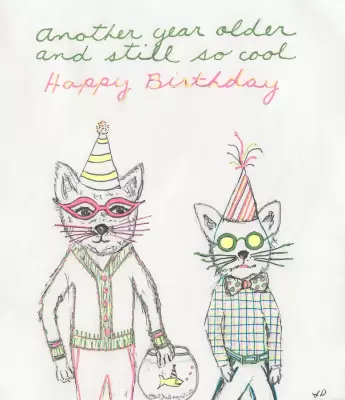 another year older
and still so cool
Happy Birthday